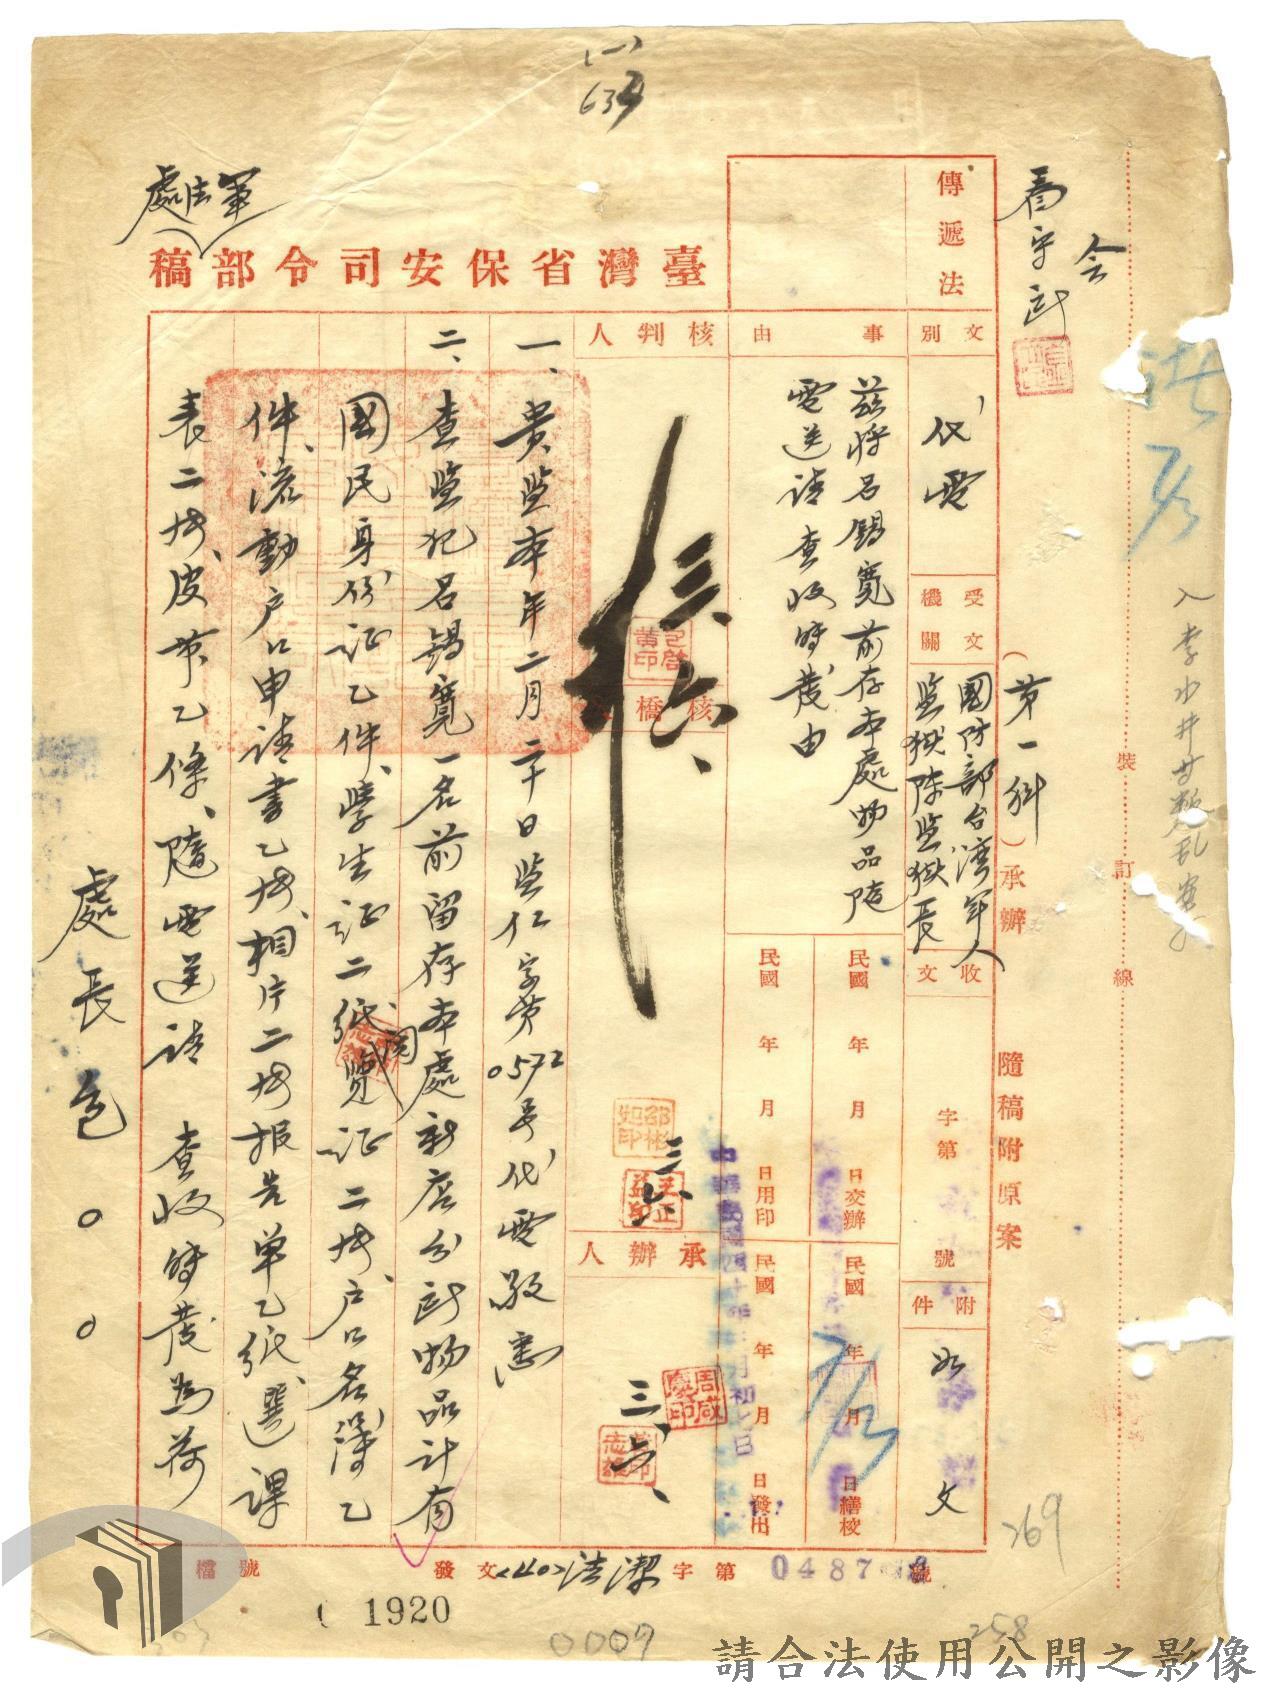 (一)
634
軍法處
臺灣省保安司令部稿
會
看守所
傳遞法
文別
代電
事由
茲將呂錫寬前存本處物品隨
電送請查收時 由
受文機關
國防部台灣軍人
監獄陳監獄長
收文
字第
號
附件
如文
(第一科)承辦
隨稿附原案
裝
訂
線
核判人
包啓黃印
核稿
民國 年 月 日交辦
民國 年 月 日繕校
民國 年 月 日用印
民國 年 月 日發出
邵彬如印
王正
承辦人
周咸慶印
三六、
一、貴監本年二月二十日監仁字第0572号代電敬悉
二、查監犯呂錫寬一名前留存本處新店分所物品計有
國民身份証乙件、學生証二紙、閱覽証二張、戶口名簿乙
件、流動戶口申請書乙張、相片二張報告單乙紙、選課
表二張、皮帶乙條、隨電送請 查收時 為荷
處長包○○
發文
(40)洁潔
字第
0487
號
檔號
1920
0007
258
269
請合法使用公開之影像